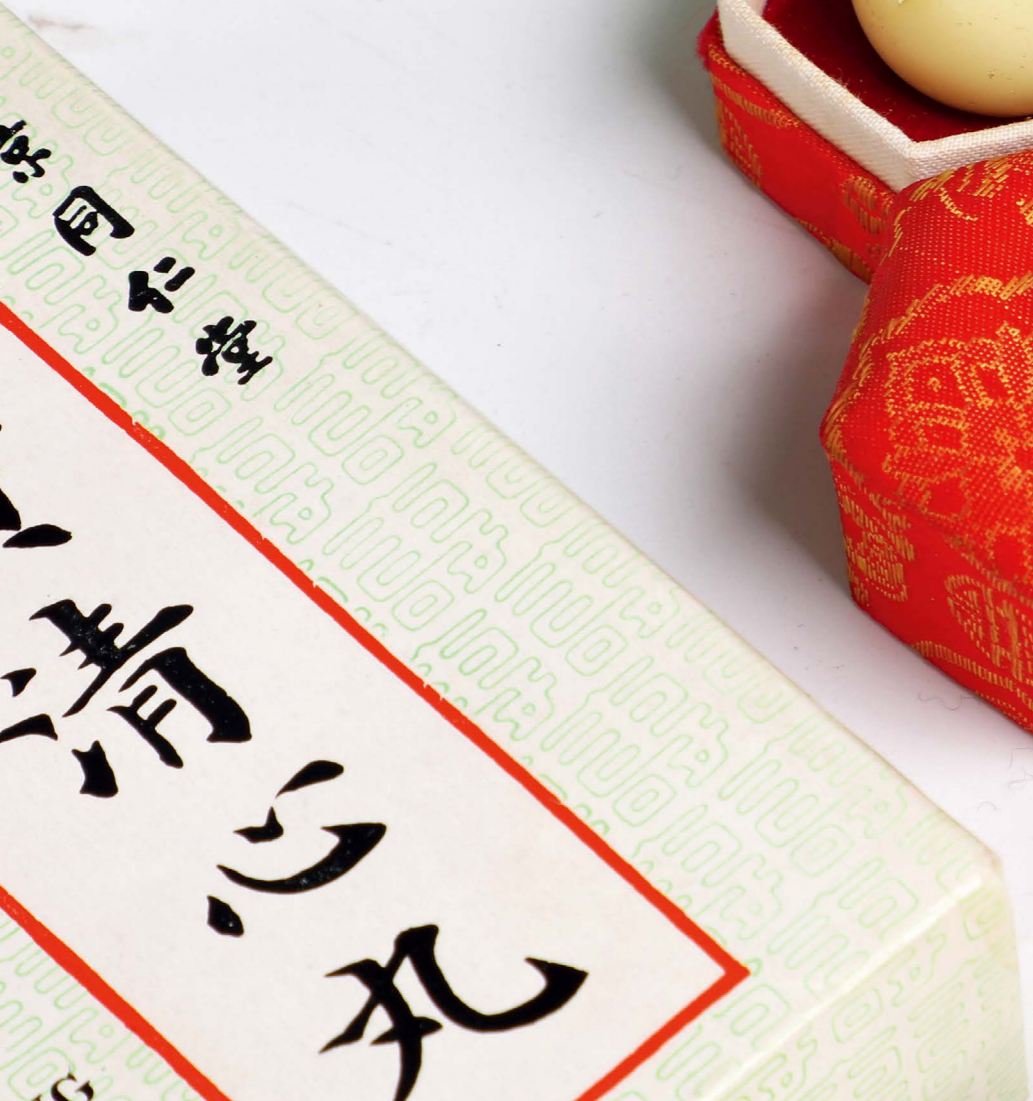 京同仁堂
清心丸